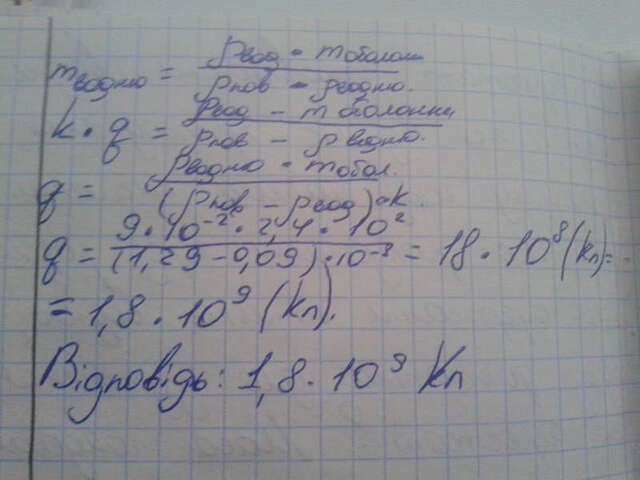 m водню = ρвод · m оболон / ρпов - ρводню.
k · q = ρвод - m оболонки / ρпов - ρводню.
q = ρводню · m обол. / (ρпов - ρвод) · k.
q = 9·10⁻² · 2,4 · 10² / (1,29 - 0,09) · 10⁻⁸ = 18 · 10⁸ (кл) =
= 1,8 · 10⁹ (кл).
Відповідь: 1,8 · 10⁹ Кл